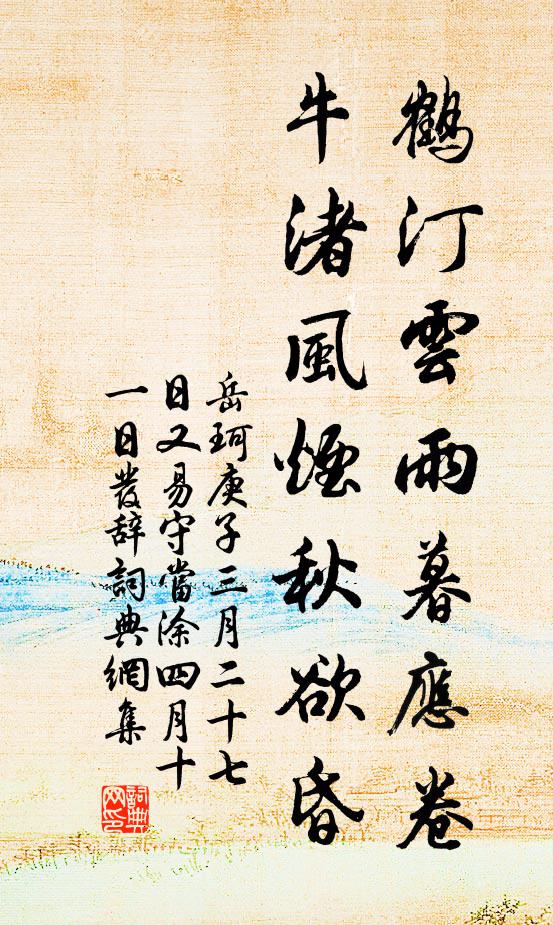 鶴汀雲雨暮應卷
牛渚風煙秋欲昏
岳珂庚子三月二十七
日又易守當涂四月十
一日發辭詞典網集
詞典网印